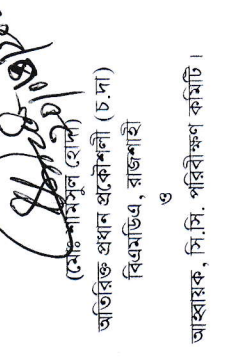 (মোঃ শামসুল হোদা)
অতিরিক্ত প্রধান প্রকৌশলী (চ.দা)
বিএমডিএ, রাজশাহী
ও
আহবায়ক, সি.সি. পরিবীক্ষণ কমিটি।